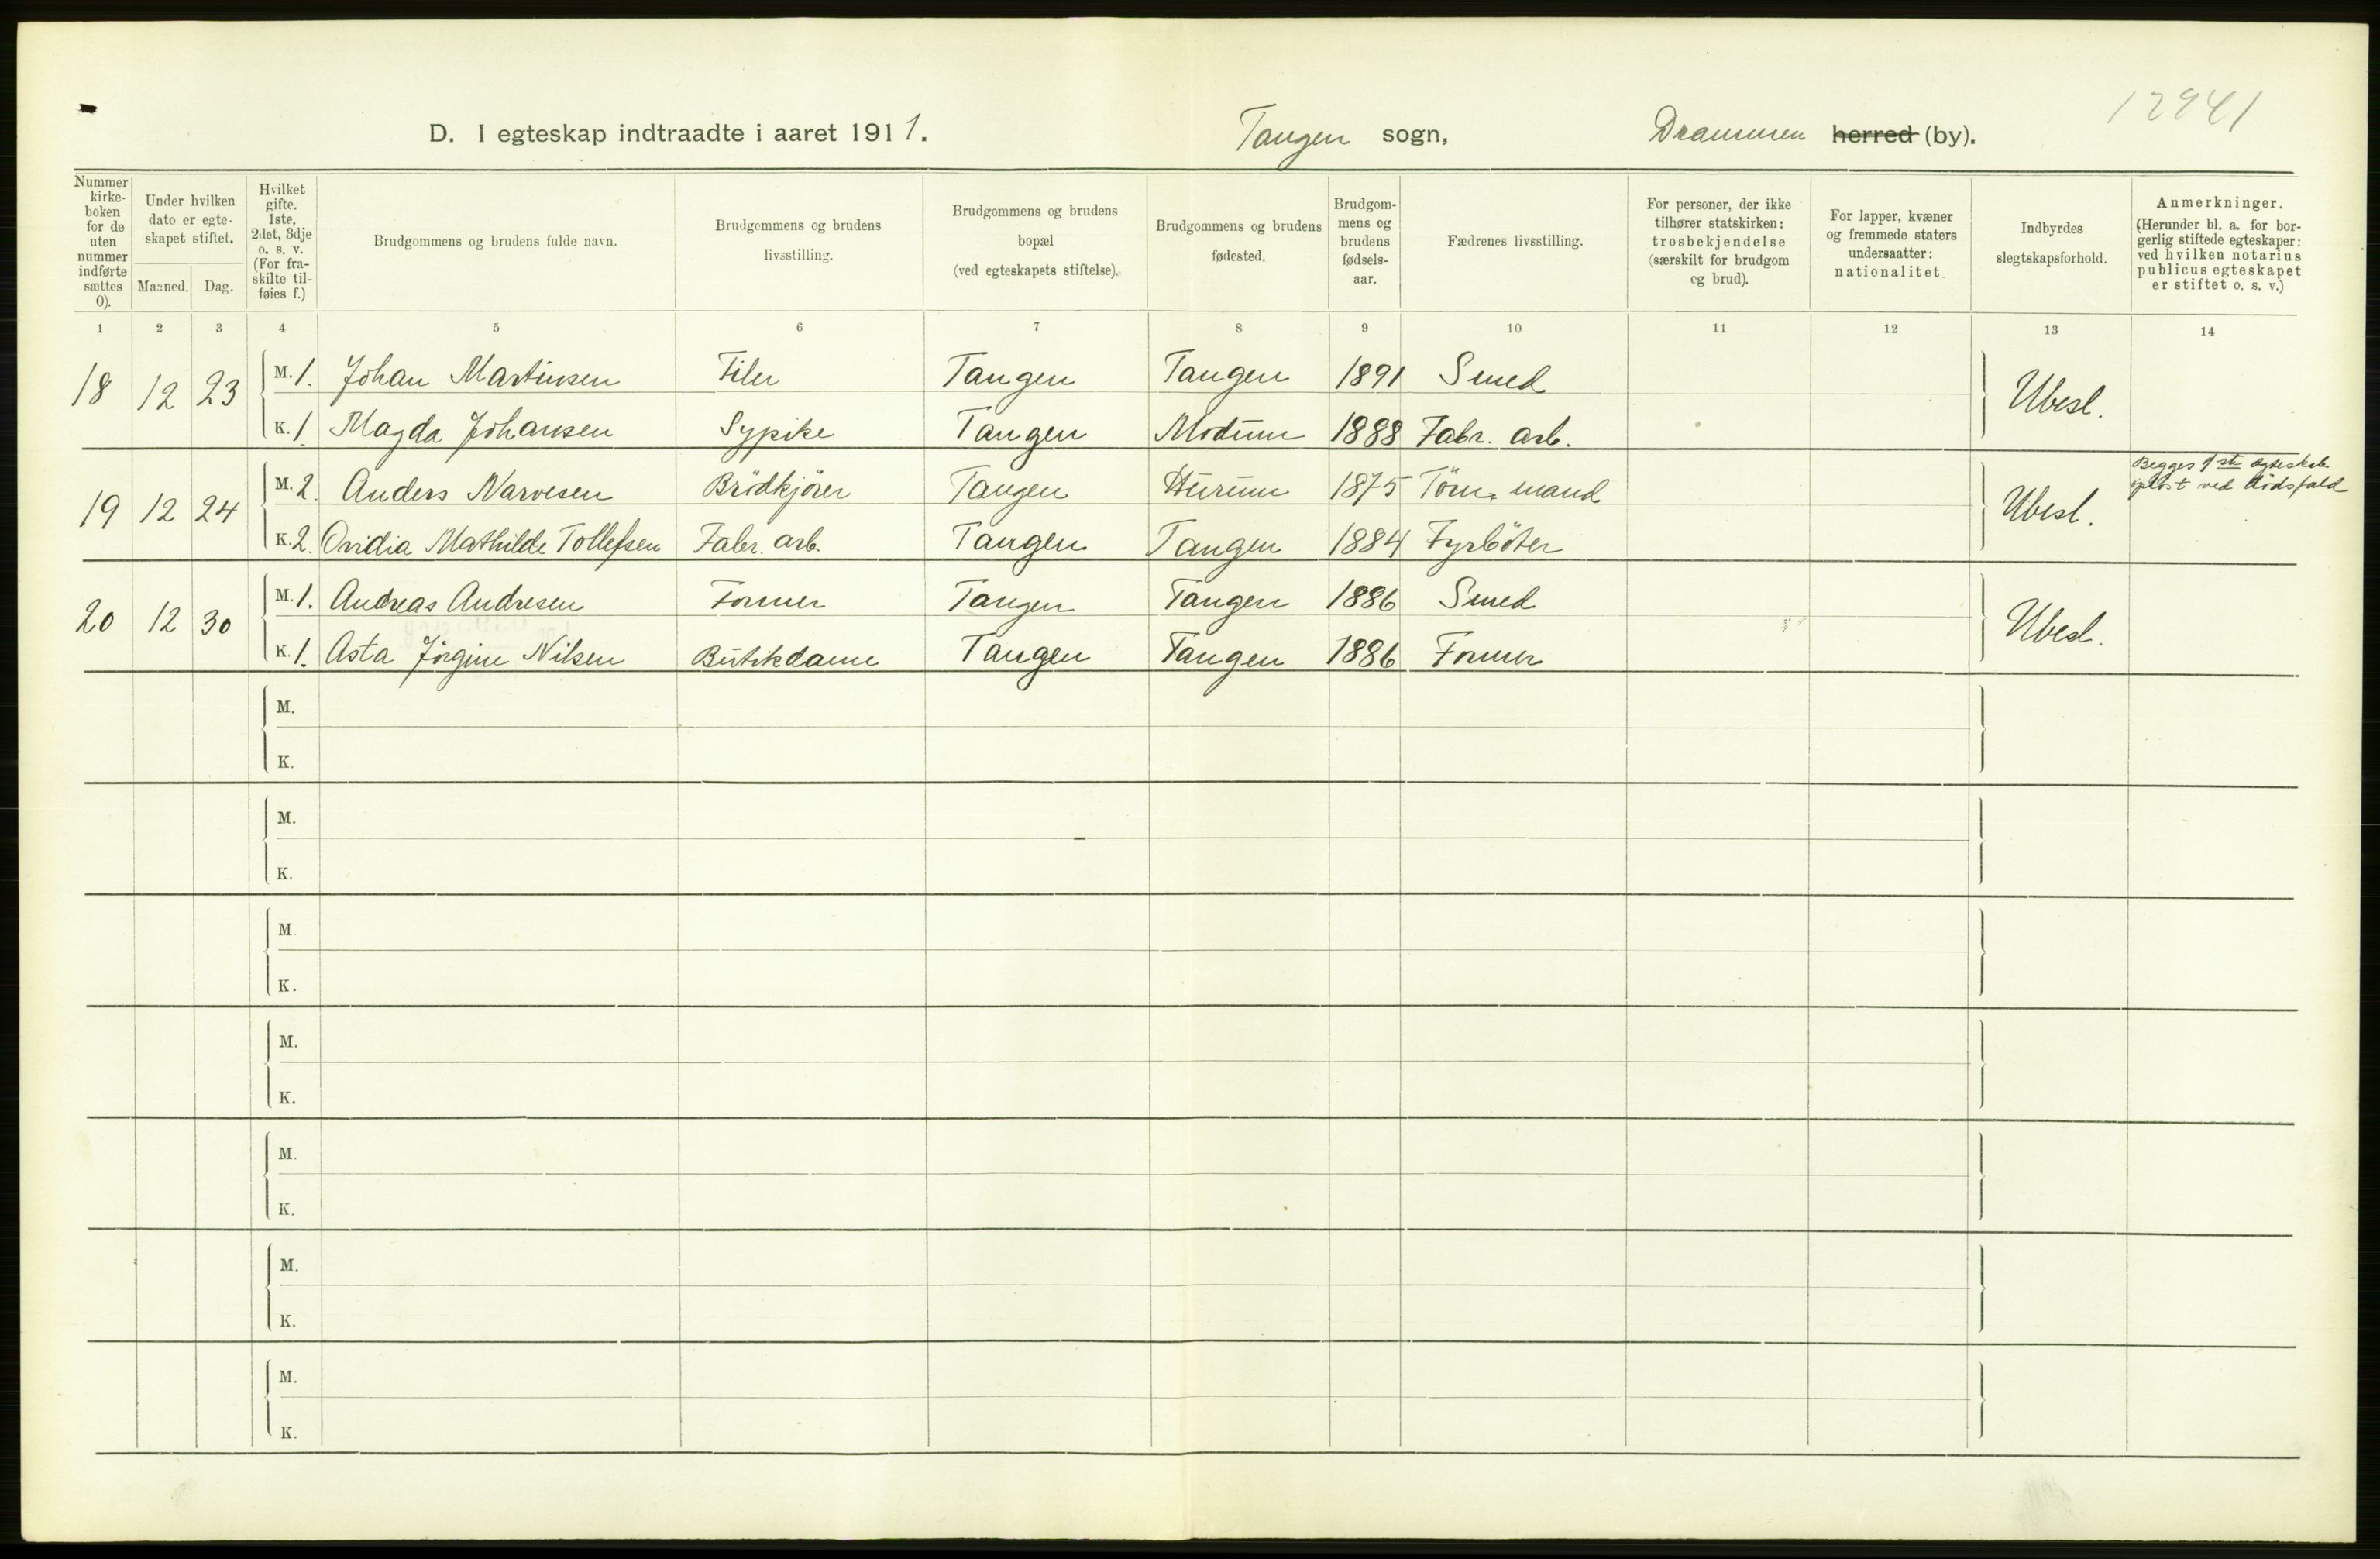 12941
D. I egteskap indtraadte i aaret 1911. Tangen sogn, Drammen herred (by).
Nummer kirkeboken for de uten nummer indførte sættes 0).
Under hvilken dato er egteskapet stiftet.
Maaned. Dag.
Hvilket gifte. 1ste, 2det, 3dje o. s. v. (For fraskilte tilføies f.)
Brudgommens og brudens fulde navn.
Brudgommens og brudens livsstilling.
Brudgommens og brudens bopæl (ved egteskapets stiftelse).
Brudgommens og brudens fødested.
Brudgommens og brudens fødselsaar.
Fædrenes livsstilling.
For personer, der ikke tilhører statskirken: trosbekjendelse (særskilt for brudgom og brud).
For lapper, kvæner og fremmede staters undersaatter: nationalitet.
Indbyrdes slegtskapsforhold.
Anmerkninger. (Herunder bl. a. for borgerlig stiftede egteskaper: ved hvilken notarius publicus egteskapet er stiftet o. s. v.)
1 2 3 4 5 6 7 8 9 10 11 12 13 14
18 12 23 M. 1. Johan Martinsen Filer Tangen Tangen 1891 Smed Ubesl.
K. 1 Magda Johansen Sypike Tangen Modum 1888 Fabr. arb.
19 12 24 M. 2. Anders Narvesen Brödkjörer Tangen Hurum 1875 Töm. mand Ubesl. Begges 1ste egteskab
opløst ved dödsfald
K. 2. Ovidia Mathilde Tollefsen Fabr. arb. Tangen Tangen 1884 Fyrböter
20 12 30 M. 1. Andreas Andresen Former Tangen Tangen 1886 Smed Ubesl.
K. 1. Asta Jörgine Nilsen Butikdame Tangen Tangen 1886 Former
M.
K.
M.
K.
M.
K.
M.
K.
M.
K.
M.
K.
M.
K.